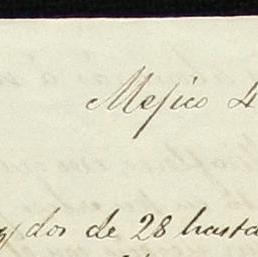 Mejico 4
y dos de 28 hasta